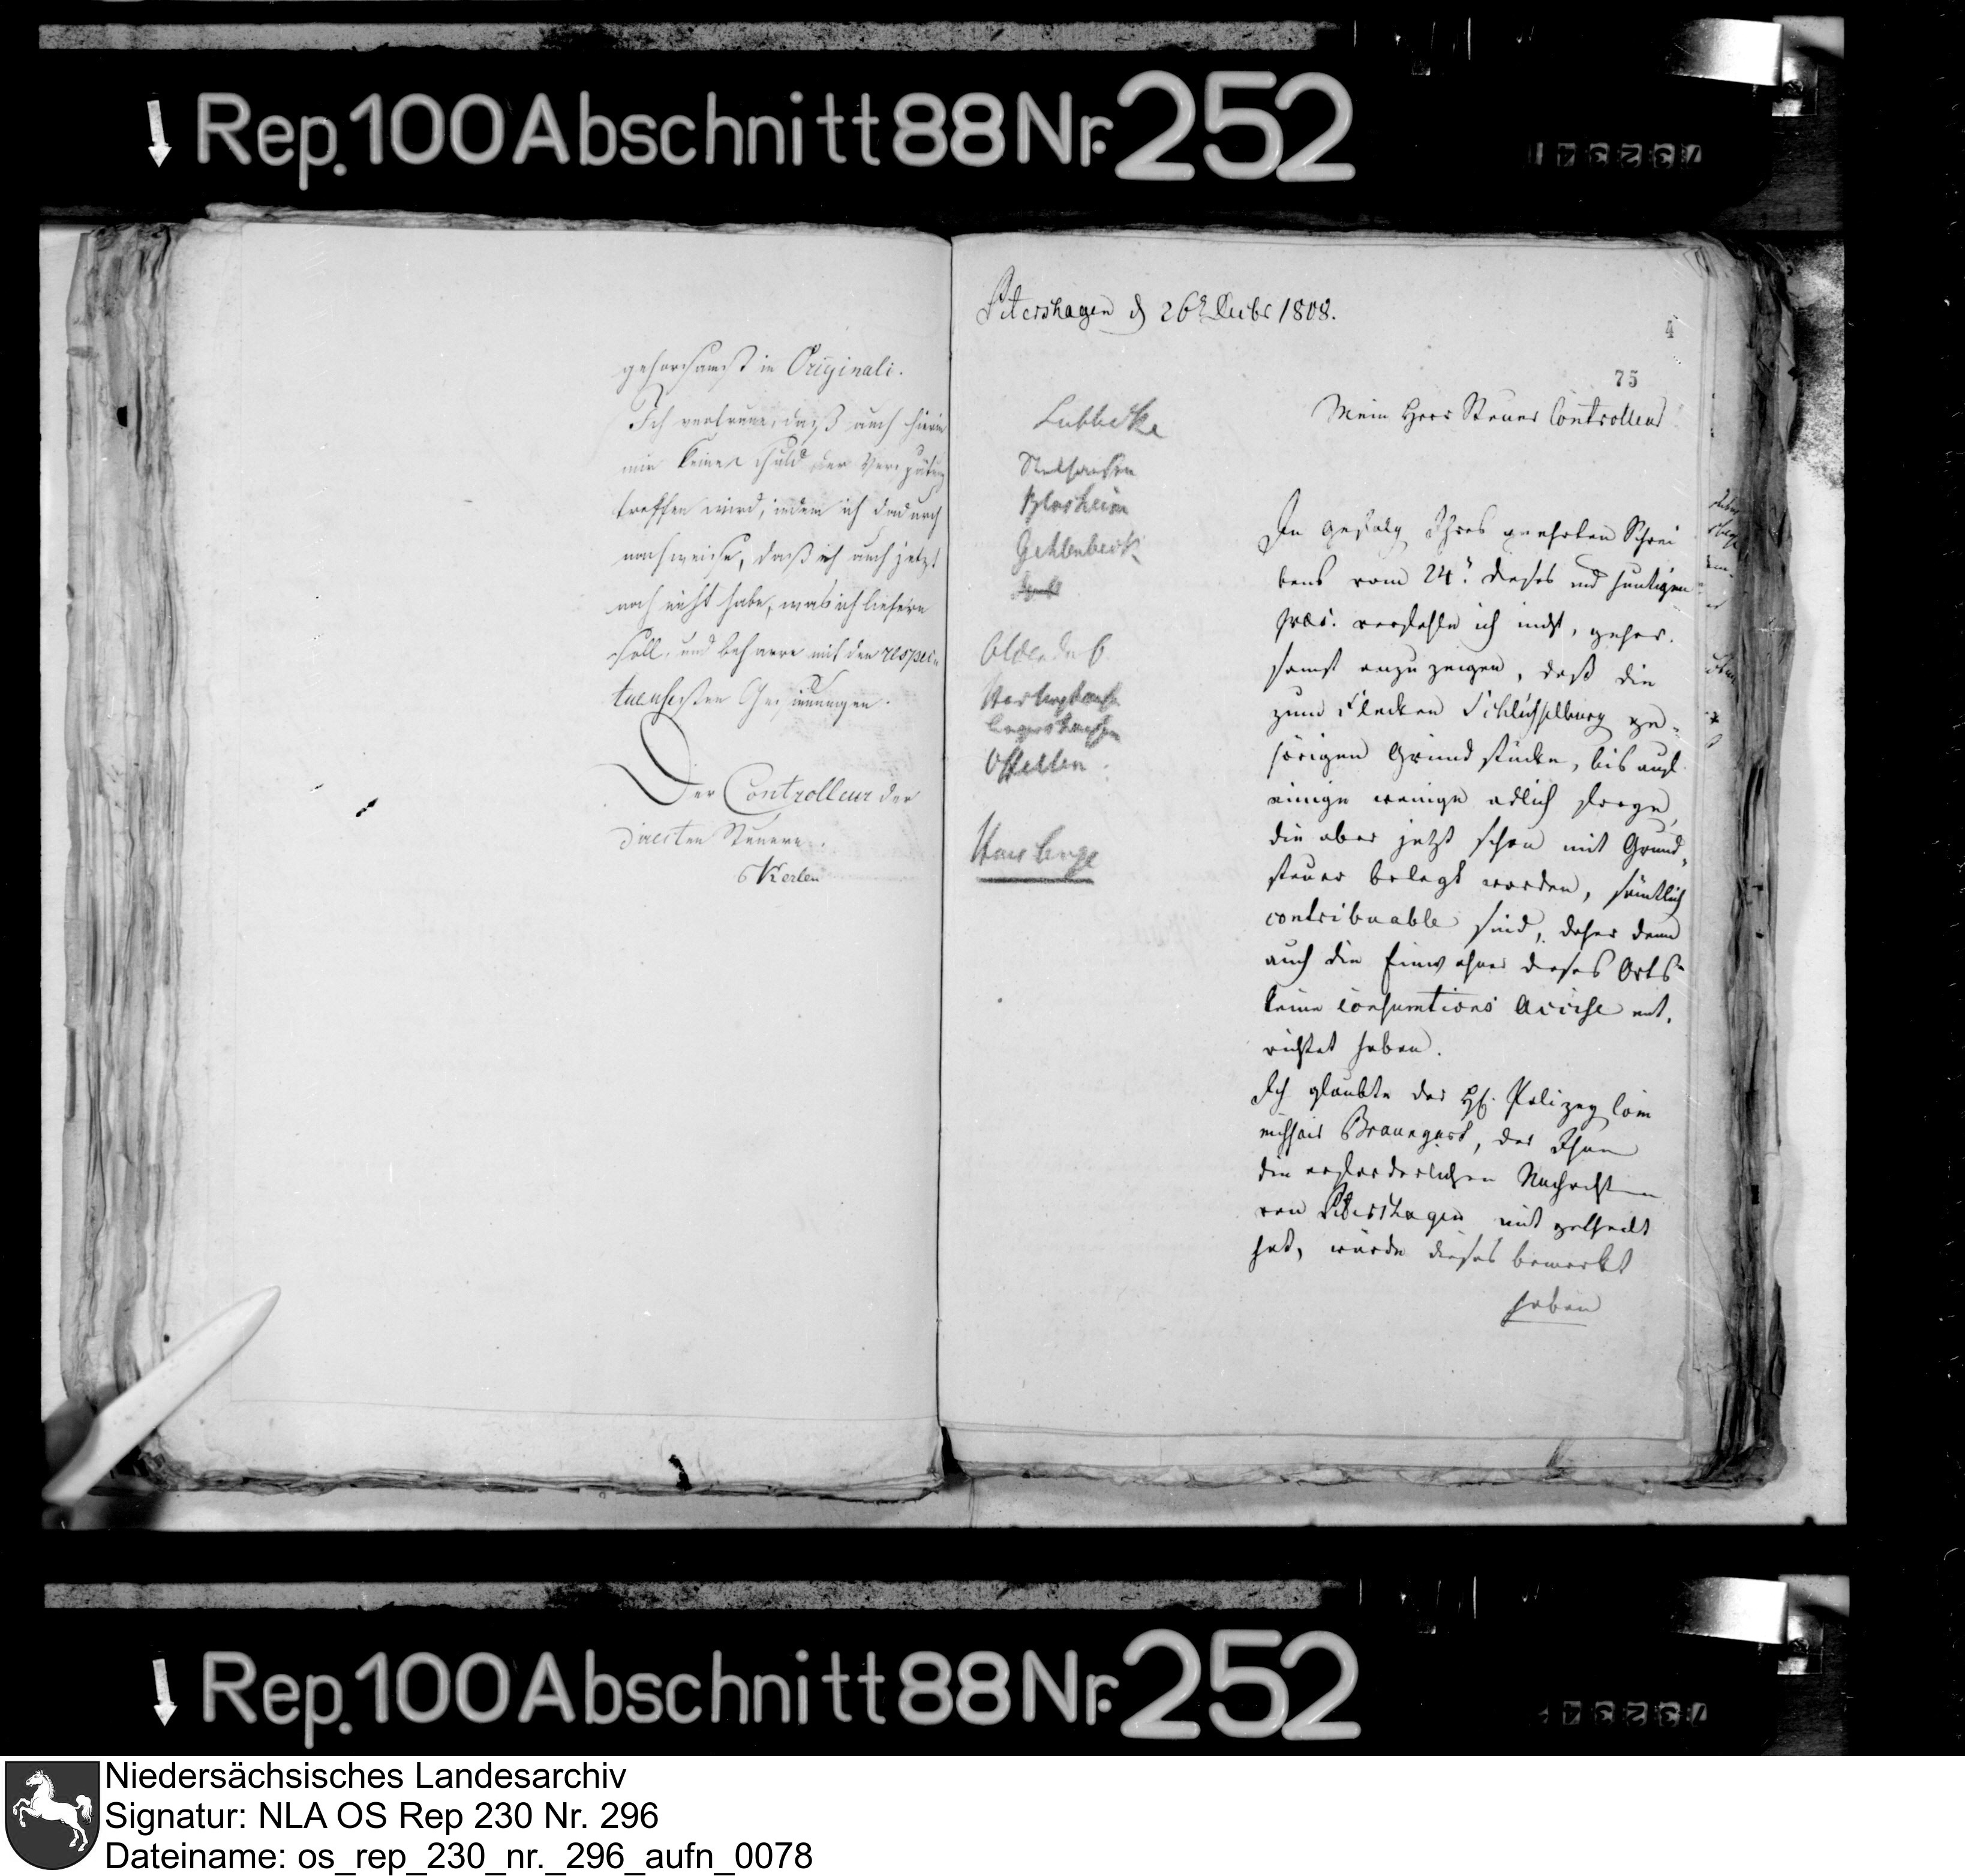 Rep.100Abschnitt88Nr.252
gehorsamst in Originali.
Ich vertraue, daß auch hierin
mir keine Schuld der Verspätung
treffen wird, indem ich dadurch
nachweise, daß ich auch jetzt
noch nicht habe, was ich liefern
soll, und beharre mit den respec-
tueusesten Gesinnungen.
Der Controlleur der
directen Steuern.
Kerlen
Petershagen d 26t Decbr 1808.
4
75
Lübbecke
Blasheim
Gehlenbeck
Oldendorf
Offelten
Haus Benge
Mein Herr Steuer Controlleur
In Gefolg Ihres geehrten Schrei
bens vom 24t. dieses und heutigen
praes. verfehle ich nicht, gehor-
samst anzuzeigen, daß die
zum Flecken Schlüsselburg ge-
hörigen Grundstücke, bis auf
einige wenige adlich freye,
die aber jetzt schon mit Grund-
steuer belegt worden, sämtlich
contribuable sind, daher denn
auch die Einwohner dieses Orts
keine Consumtions Accise ent-
richtet haben.
Ich glaubte der H. Polizey Com
missair Brauegard, der Ihnen
die erforderlichen Nachrichten
von Petershagen mit getheilt
hat, würde dieses bemerkt
haben
Rep.100Abschnitt88Nr.252
Niedersächsisches Landesarchiv
Signatur: NLA OS Rep 230 Nr. 296
Dateiname: os_rep_230_nr._296_aufn_0078